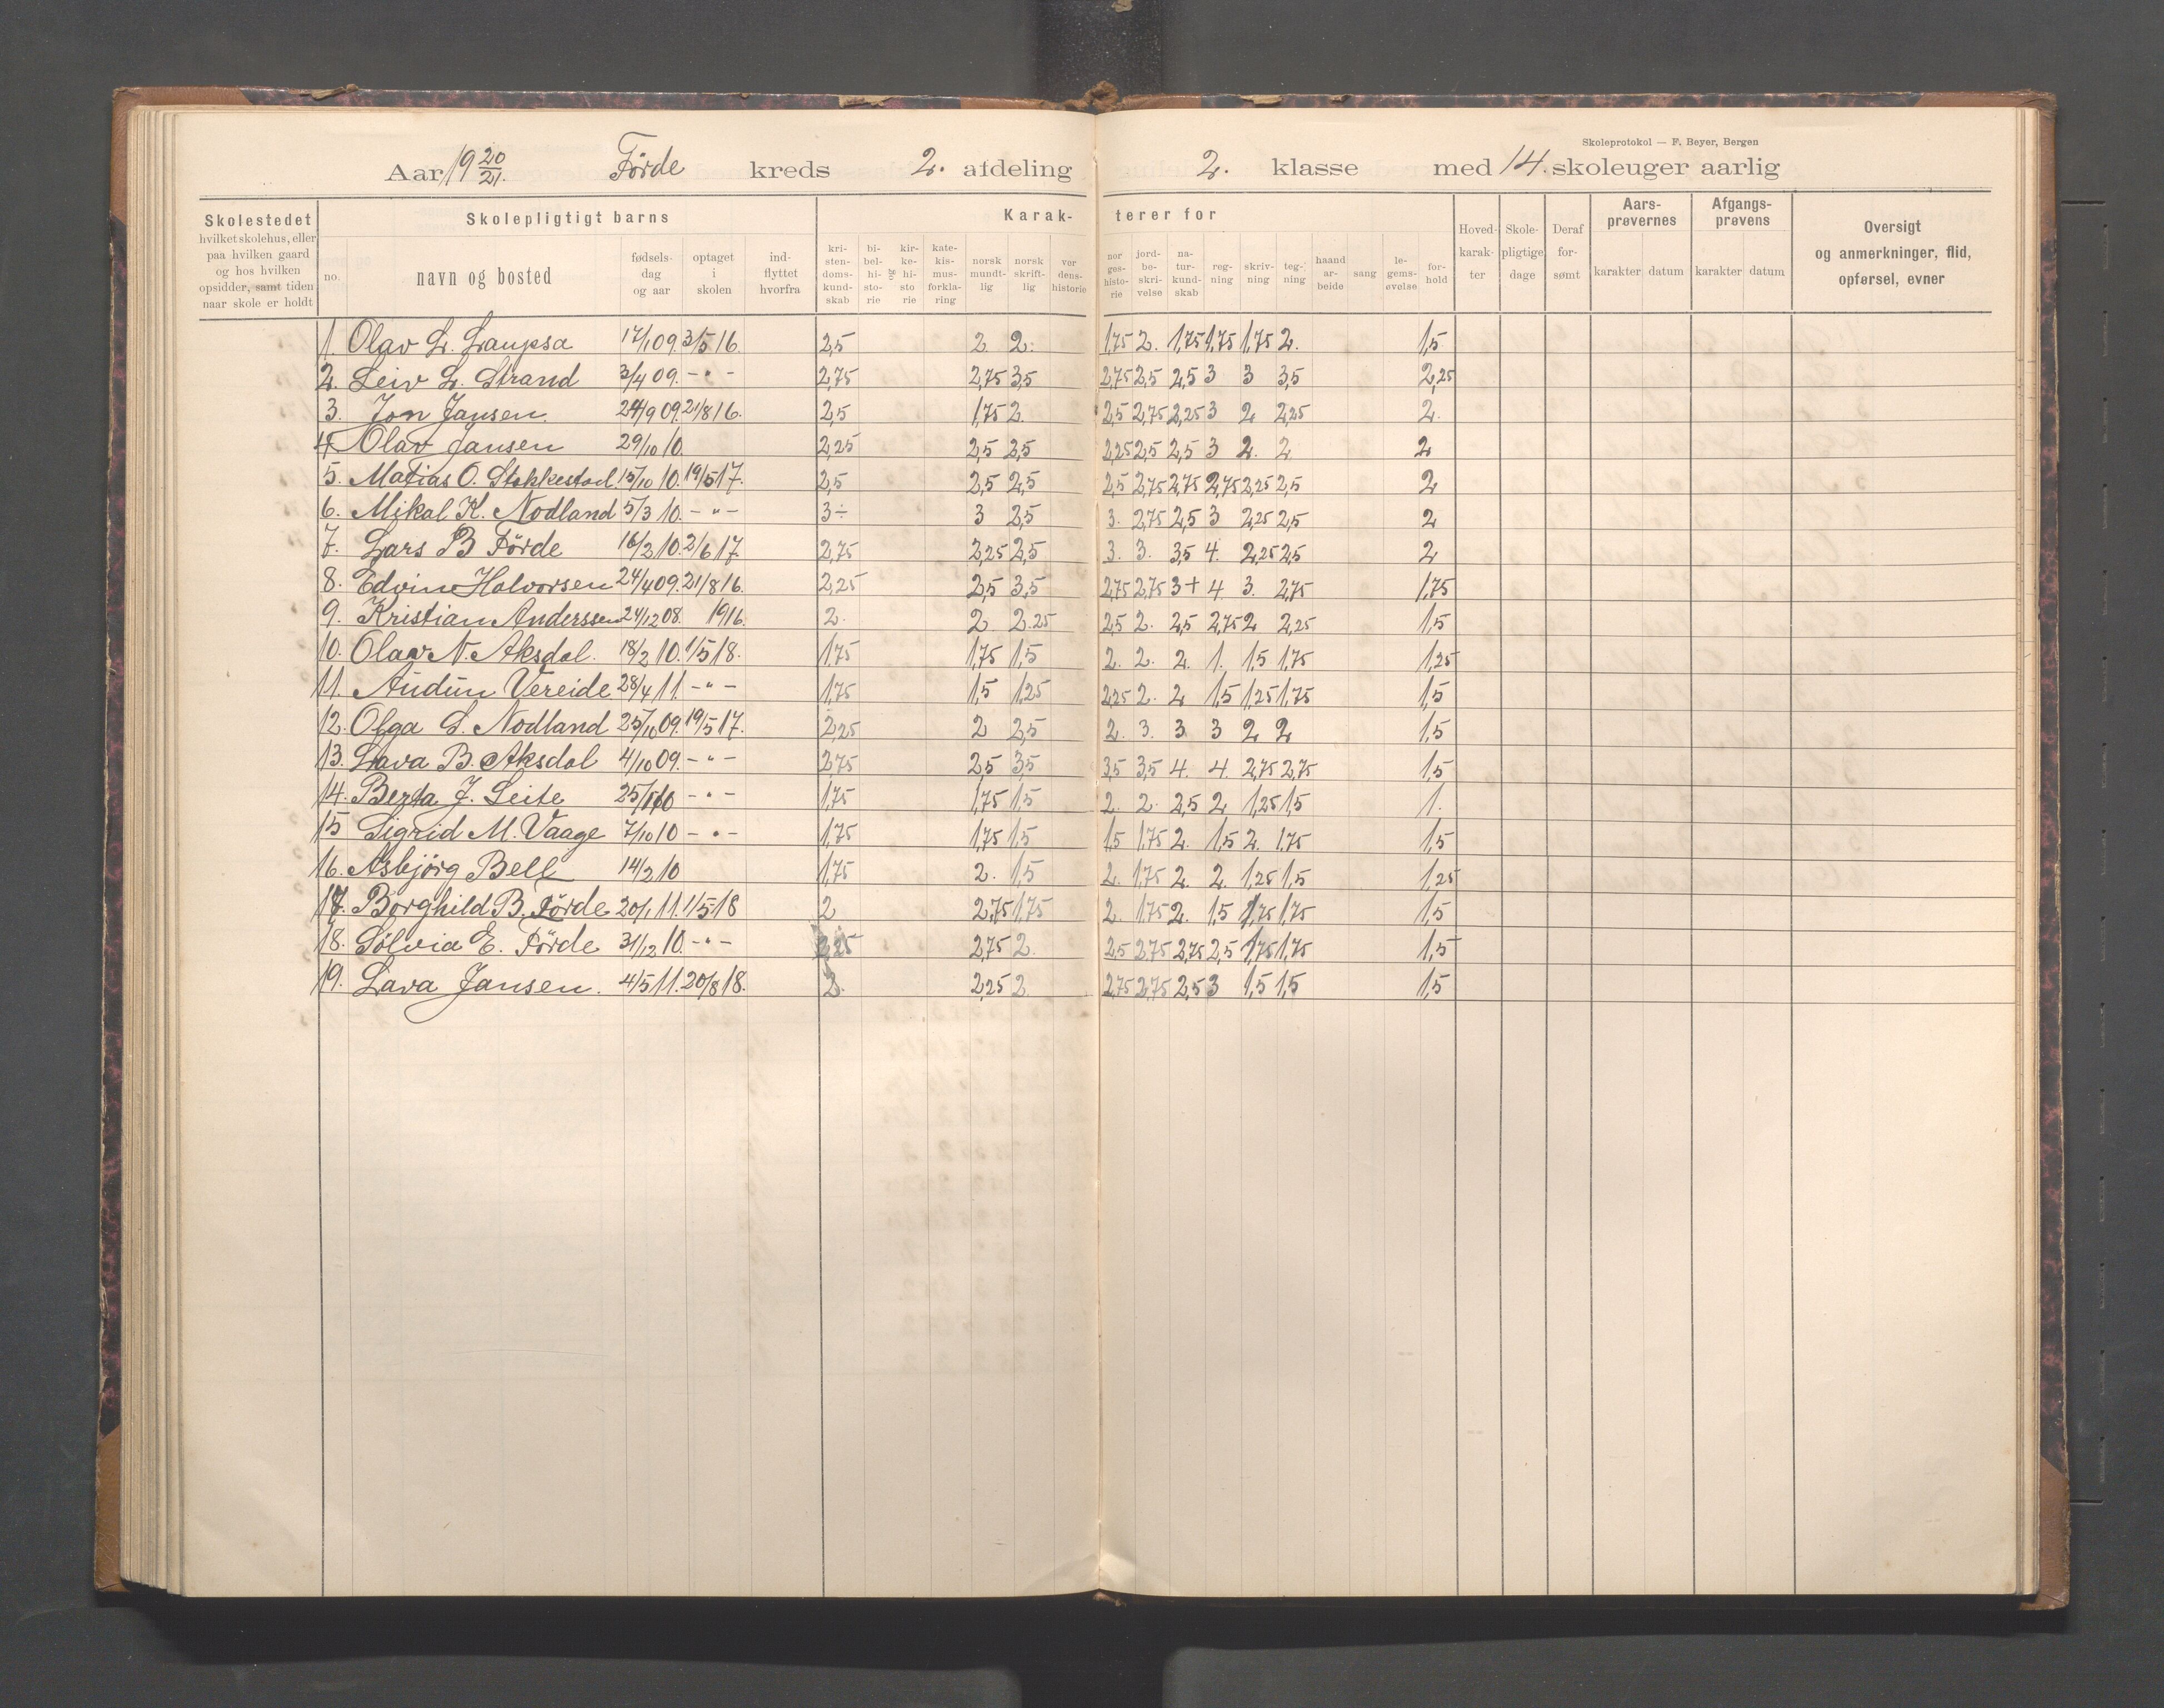 Skoleprotokol — F. Beyer, Bergen
Aar 19 20/21. Förde kreds 2. afdeling 2. klasse med 14. skoleuger aarlig
Skolestedet hvilket skolehus, eller paa hvilken gaard og hos hvilken opsidder, samt tiden naar skole er holdt
Skolepligtigt barns
no. navn og bosted fødselsdag og aar optaget i skolen indflyttet hvorfra
Karakterer for
kristendomskundskab bibelhistorie og kirkehistorie katekismusforklaring norsk mundtlig norsk skriftlig verdenshistorie norgeshistorie jordbeskrivelse naturkundskab regning skrivning tegning haandarbeide sang legemsøvelse forhold
Hovedkarakter Skolepligtige dage Deraf forsømt
Aarsprøvernes karakter datum
Afgangsprøvens karakter datum
Oversigt og anmerkninger, flid, opførsel, evner
1. Olav L. Laupsa 17/1 09. 3/5 16. 2,5 2 2. 1,75 2. 1,75 1,75 1,75 2. 1,5
2. Leiv L. Strand 3/4 09. - " - 2,75 2,75 3,5 2,75 2,5 2,5 3 3 3,5 2,25
3. Jon Jansen. 24/9 09. 21/8 16. 2,5 1,75 2. 2,5 2,75 2,25 3 2 2,25 2.
4 Olav Jansen 29/10 10. 2,25 2,5 2,5 2,25 2,5 2,5 3 2. 2 2
5. Matias O. Stokkestad. 15/10 10. 19/5 17. 2,5 2,5 2,5 2,5 2,75 2,75 2,75 2,25 2,5 2
6. Mikal K. Nodland 5/3 10. - " - 3÷ 3 2,5 3. 2,75 2,5 3 2,25 2,5 2
7. Lars B Förde 16/2 10. 2/6 17. 2,75 2,25 2,5 3. 3. 3,5 4. 2,25 2,5 2
8. Edvin Halvorsen 24/4 09. 21/8 16. 2,25 2,5 3,5 2,75 2,75 3+ 4. 3. 2,75 1,75
9. Kristian Anderssen 24/12 08. 1916. 2. 2 2.25 2,5 2. 2,5 2,75 2 2,25 1,5
10. Olav N. Aksdal. 18/2 10. 1/5 18. 1,75 1,75 1,5 2. 2. 2. 1. 1,5 1,75 1,25
11. Audun Vereide 28/4 11. - " - 1,75 1,5 1,25 2,25 2. 2 1,5 1,25 1,75 1,5
12. Olga S. Nodland 25/10 09. 19/5 17. 2,25 2 2,5 2. 3. 3 3 2 2 1,5
13. Lava B. Aksdal 4/10 09. - " - 2,75 2,5 3,5 3,5 3,5 4. 4. 2,75 2,75 1,5
14. Berta J. Leite 25/1 10 - " - 1,75 1,75 1,5 2. 2. 2,5 2 1,25 1,5 1.
15 Sigrid M. Vaage 7/10 10 - " - 1,75 1,75 1,5 1,5 1,75 2. 1,5 2. 1,75 1,5
16. Asbjörg Bell 14/2 10 1,75 2. 1,5 2. 1,75 2. 2. 1,25 1,5 1,25
17. Borghild B. Förde 20/1 11. 1/5 18 2 2,75 1,75 2. 1,75 2. 1,5 1,75 1,75 1,5
18. Sölvia E. Förde 31/12 10. - " - 2,25 2,75 2. 2,5 2,75 2,75 2,5 1,75 1,75 1,5
19. Lava Jansen. 4/5 11. 20/8 18. 2. 2,25 2 2,75 2,75 2,5 3 1,5 1,5 1,5